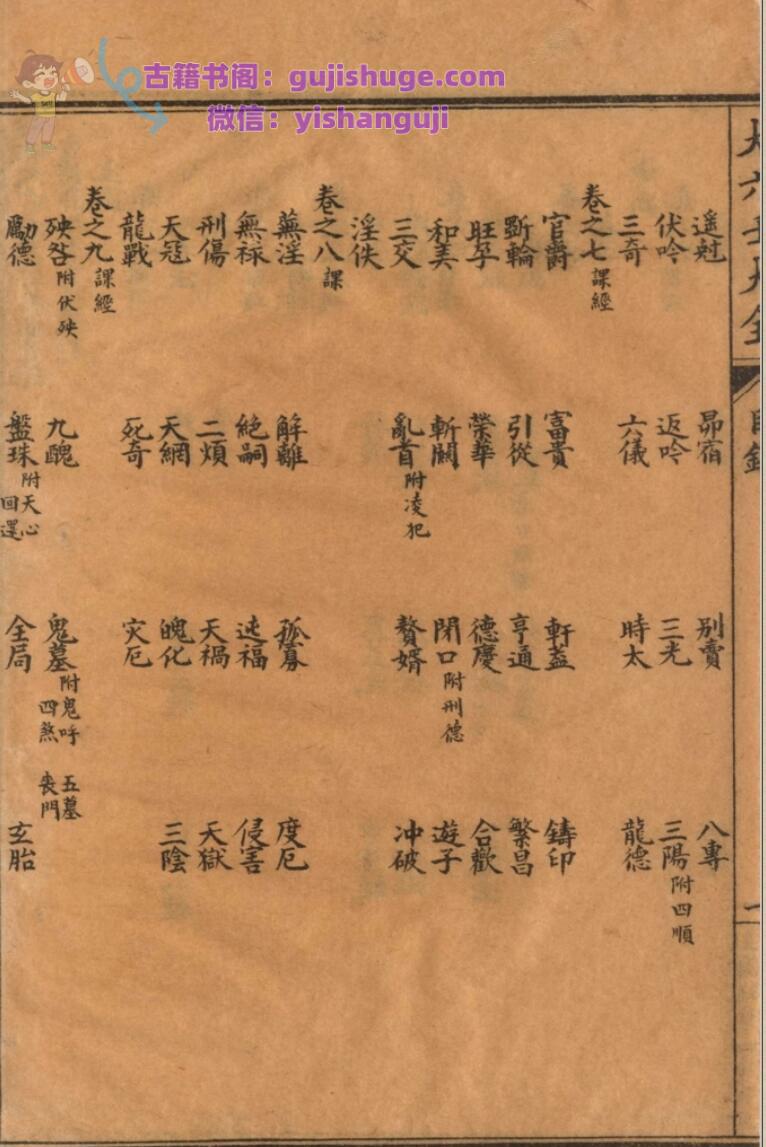 古籍书阁：gujishuge.com
微信：yishanguji
大六壬大全
目錄
一
遥尅 昴宿 别責 八專
伏吟 返吟 三光 三陽附四順
三奇 六儀 時太 龍德
卷之七課經
官爵 富貴 軒蓋 鑄印
斵輪 引從 亨通 繁昌
旺孕 榮華 德慶 合歡
和美 斬關 閉口附刑德 遊子
三交 亂首附凌犯 贅婿 冲破
淫泆
卷之八課
蕪淫 解離 孤寡 度厄
無禄 絶嗣 迍福 侵害
刑傷 二煩 天禍 天獄
天冦 天網 魄化 三陰
龍戰 死奇 灾厄
卷之九課經
殃咎附伏殃 九醜 鬼墓附鬼呼四煞 五墓喪門
勵德 盤珠附天心回還 全局 玄胎